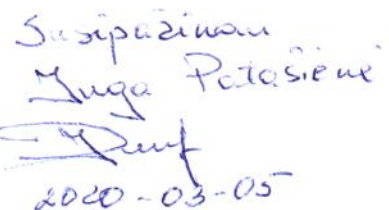 Susipažinau
Inga Patašienė
2020-03-05